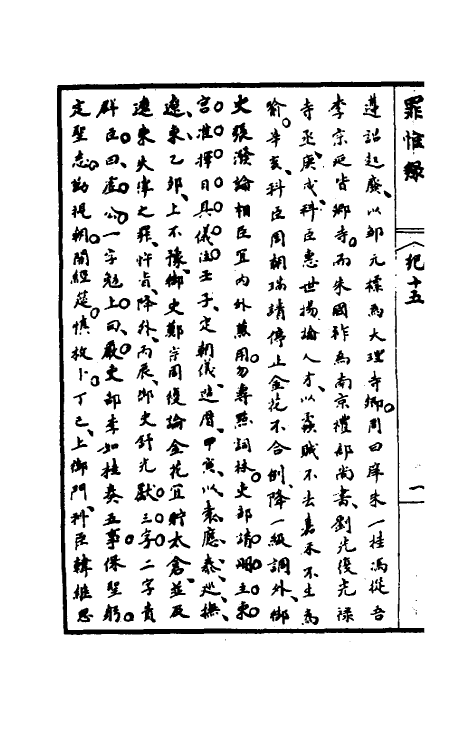 罪惟錄
紀十五
一
遵詔起廢以鄒元標為大理寺卿周曰庠朱一桂馮從吾
李宗延皆鄉寺而朱國祚為南京禮部尚書劉光復光祿
寺丞庚戌科臣惠世揚論人才以霧賊不去嘉禾不生為
喻辛亥科臣周朝瑞請停上金花不合倒降一級調外御
史張潑論相臣宜內外兼用勿專照詞林吏部請明主東
宮准擇日具儀注壬子定朝儀造曆甲寅以袁應泰巡撫
遼東乙卯上不豫御史鄭宗周復論金花宜貯太倉並及
遼東失事之罪忤旨降外丙辰御史舒光獻三字二字責
群臣曰虛公一字勉上曰嚴吏部李如桂奏五事保聖躬
定聖志勤視朝開經筵慎枚卜丁巳上御門科臣韓繼思